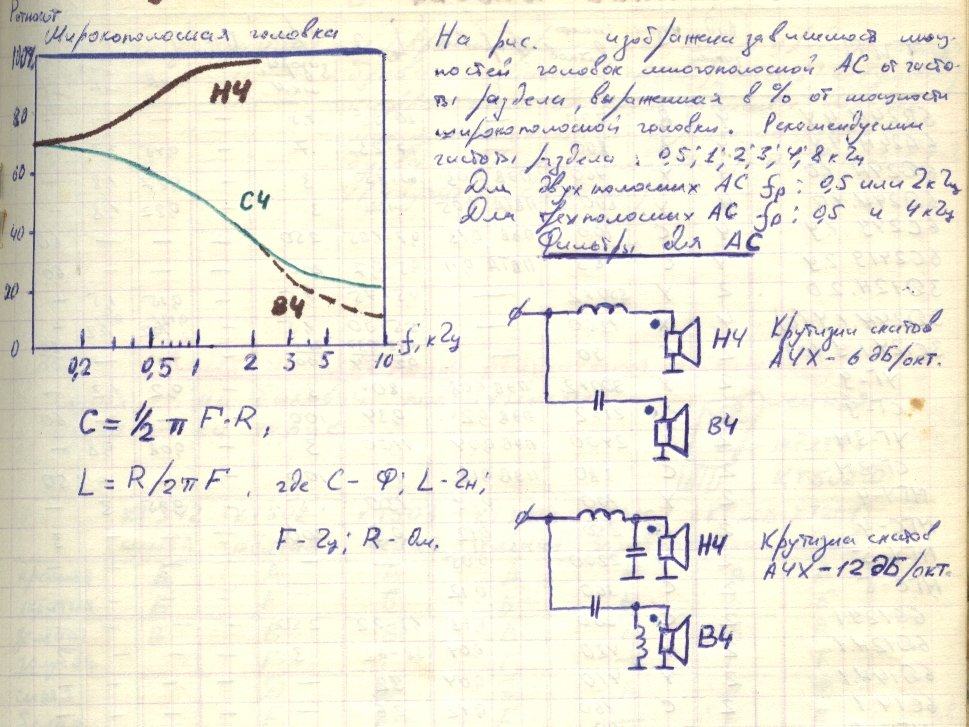 Широкополосная головка
100%
80
60
40
20
0
НЧ
СЧ
ВЧ
0,2 0,5 1 2 3 5 10 f, кГц
На рис. изображена зависимость мощ-
ностей головок многополосной АС от часто-
ты раздела, выраженная в % от мощности
широкополосной головки. Рекомендуемые
частоты раздела: 0,5; 1; 2; 3; 4; 8 кГц
Для двухполосных АС fр: 0,5 или 2 кГц
Для трехполосных АС fр: 0,5 и 4 кГц
Фильтры для АС
C = 1/2 π F·R,
L = R/2πF, где C - Ф; L - Гн;
F - Гц; R - Ом.
НЧ
ВЧ
Крутизна скатов
АЧХ - 6 дБ/окт.
НЧ
ВЧ
Крутизна скатов
АЧХ - 12 дБ/окт.